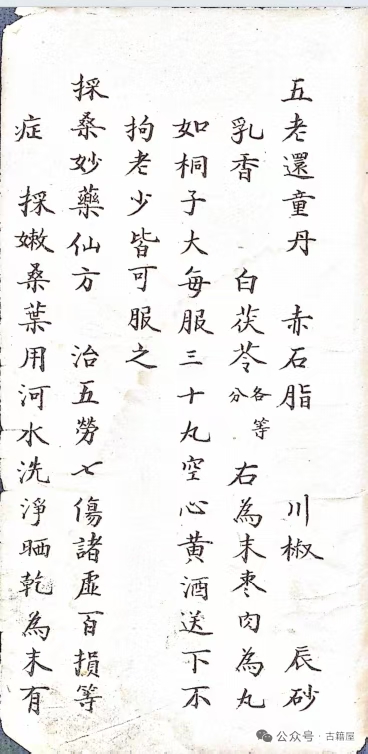 五老還童丹　赤石脂　川椒　辰砂
乳香　白茯苓各等分　右為末枣肉為丸
如桐子大每服三十丸空心黄酒送下不
拘老少皆可服之
採桑妙藥仙方　治五勞七傷諸虛百損等
症　採嫩桑葉用河水洗淨晒乾為末有
公众号·古籍屋